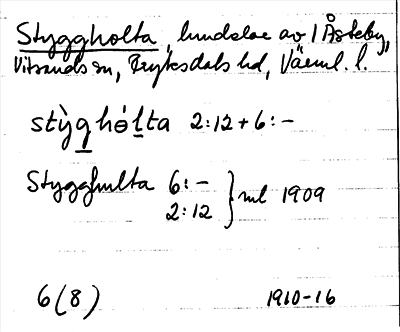 Styggholta, lundelar av 1 Åsteby,
Vitsands sn, Fryksdals hd, Värml. l.
stỳg hόlta 2:12 + 6:-
Stygghulta 6:-
2:12 } ml 1909
6(8) 1910-16